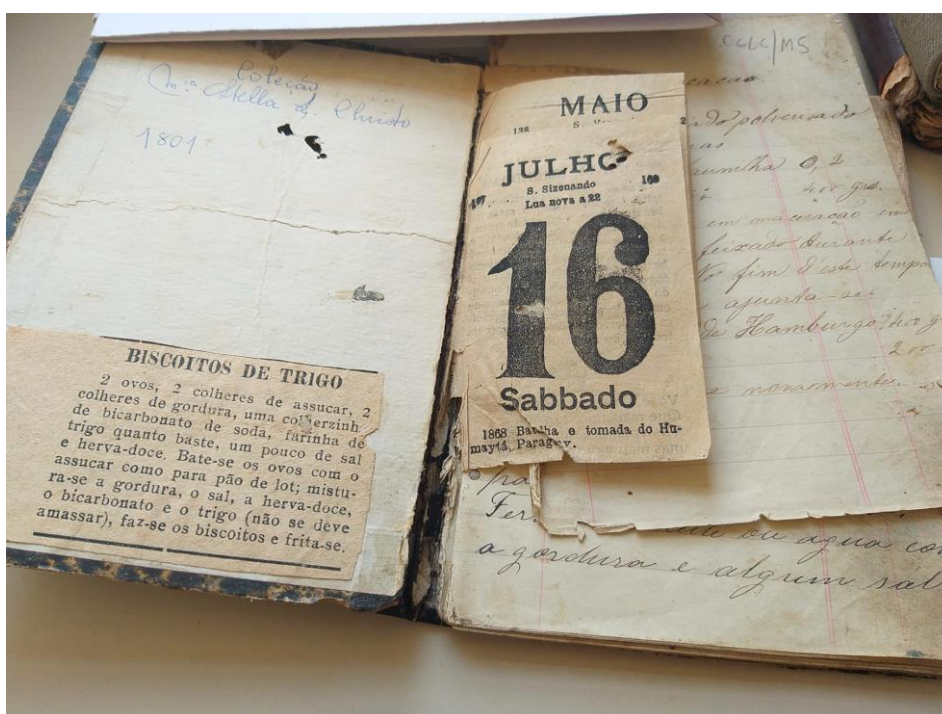 Coleção
Mia Stella L. Christo
1801
BISCOITOS DE TRIGO
2 ovos, 2 colheres de assucar, 2
colheres de gordura, uma colherzinh
de bicarbonato de soda, farinha de
trigo quanto baste, um pouco de sal
e herva-doce. Bate-se os ovos com o
assucar como para pão de lot; mistu-
ra-se a gordura, o sal, a herva-doce,
o bicarbonato e o trigo (não se deve
amassar), faz-se os biscoitos e frita-se.
MAIO
JULHO
S. Sizenando
Lua nova a 22
16
Sabbado
1868 Batalha e tomada do Hu-
maytá, Paraguay.
CCLC/MS
cacao
polverisado
0,2
400 grs.
em maceração em
feixado durante
No fim d'este tempo
ajunta-se
de Hamburgo 400 g
200
novamente.
ou agua
a gordura e algum sal